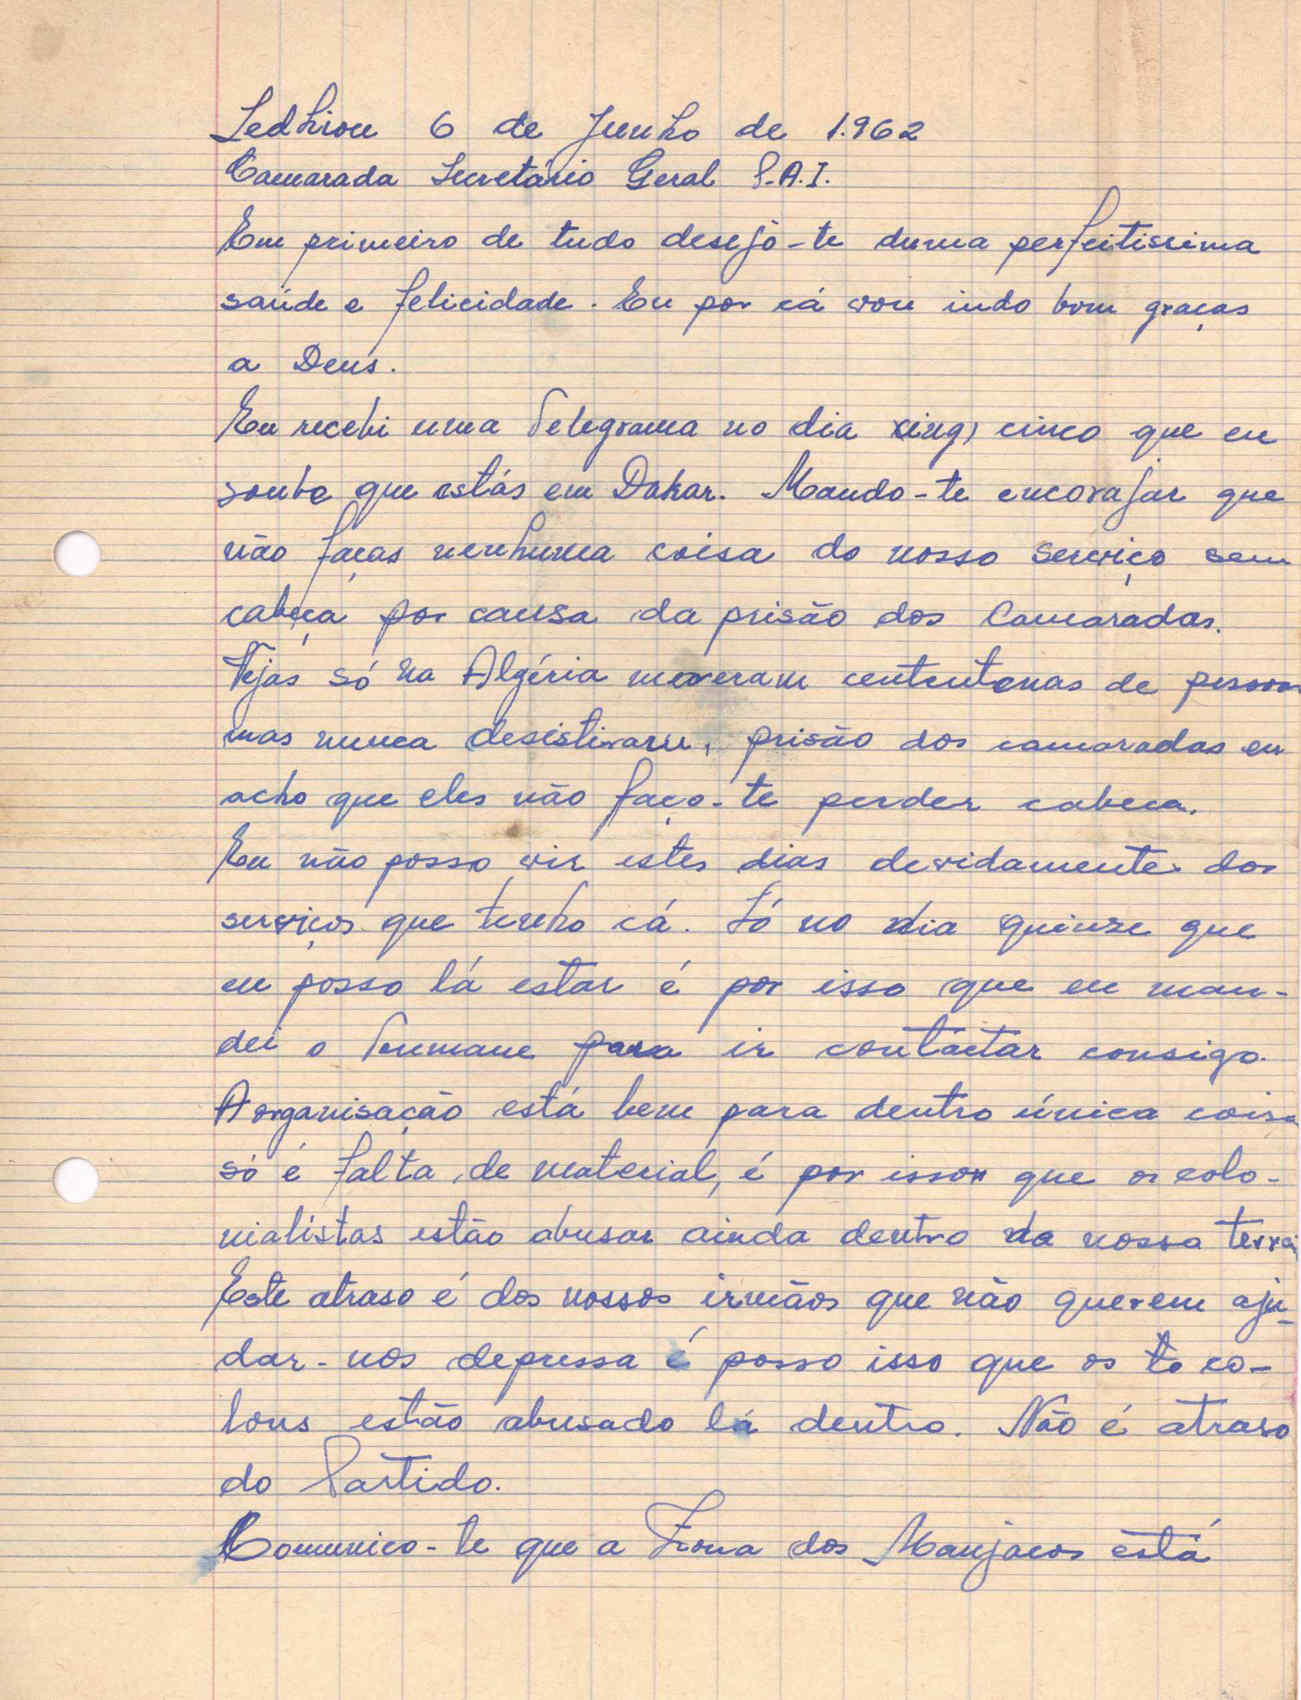 Sedhiou 6 de Junho de 1.962
Camarada Secretário Geral P.A.I.
Em primeiro de tudo desejo-te duma perfeitissima
saúde e felicidade. Eu por cá vou indo bom graças
a Deus.
Eu recebi uma Telegrama no dia cinco que eu
soube que estás em Dakar. Mando-te encorajar que
não faças nenhuma coisa do nosso serviço sem
cabeça por causa da prisão dos Camaradas.
Vejas só na Algéria moreram cententenas de pessoas
mas nunca desistiram, prisão dos camaradas eu
acho que eles não faço-te perder cabeca.
Eu não posso vir estes dias devidamente dos
serviços que tenho cá. Só no dia quinze que
eu posso lá estar é por isso que eu man-
dei o para ir contactar consigo.
A organisação está bem para dentro única coisa
só é falta de material, é por isso que os colo-
nialistas estão abusar ainda dentro da nossa terra
Este atraso é dos nossos irmãos que não querem aju-
dar-nos depressa é posso isso que os to co-
lons estão abusado lá dentro. Não é atraso
do Partido.
Comunico-te que a Zona dos Manjacos está